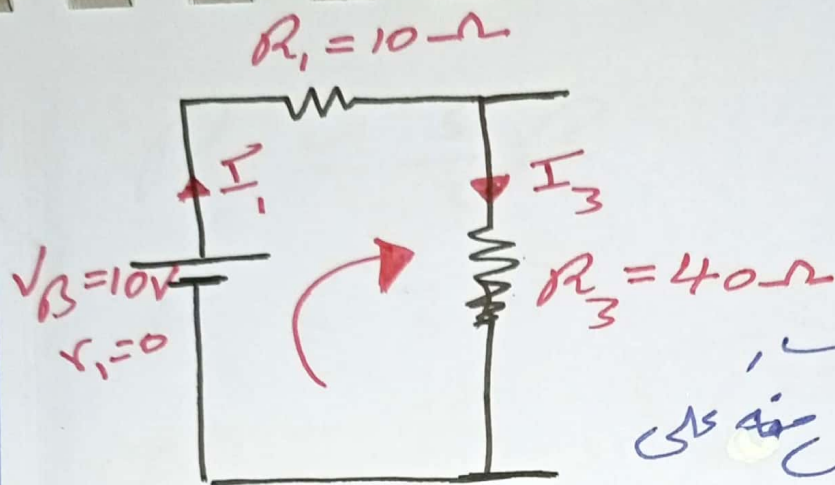 R₁ = 10 Ω
I₁
I₃
V_B = 10V
r₁ = 0
R₃ = 40 Ω
على